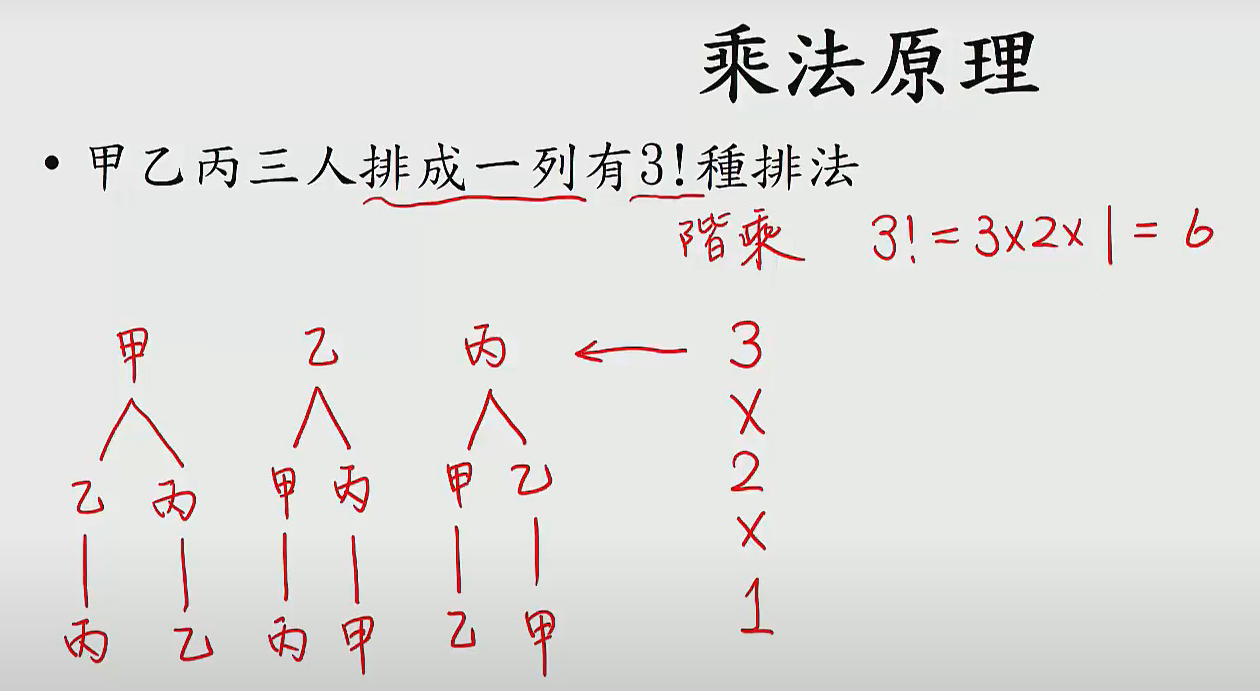 乘法原理
• 甲乙丙三人排成一列有3!種排法
階乘 3! = 3x2x1 = 6
甲 乙 丙 ← 3
x
乙 丙 甲 丙 甲 乙 2
x
丙 乙 丙 甲 乙 甲 1